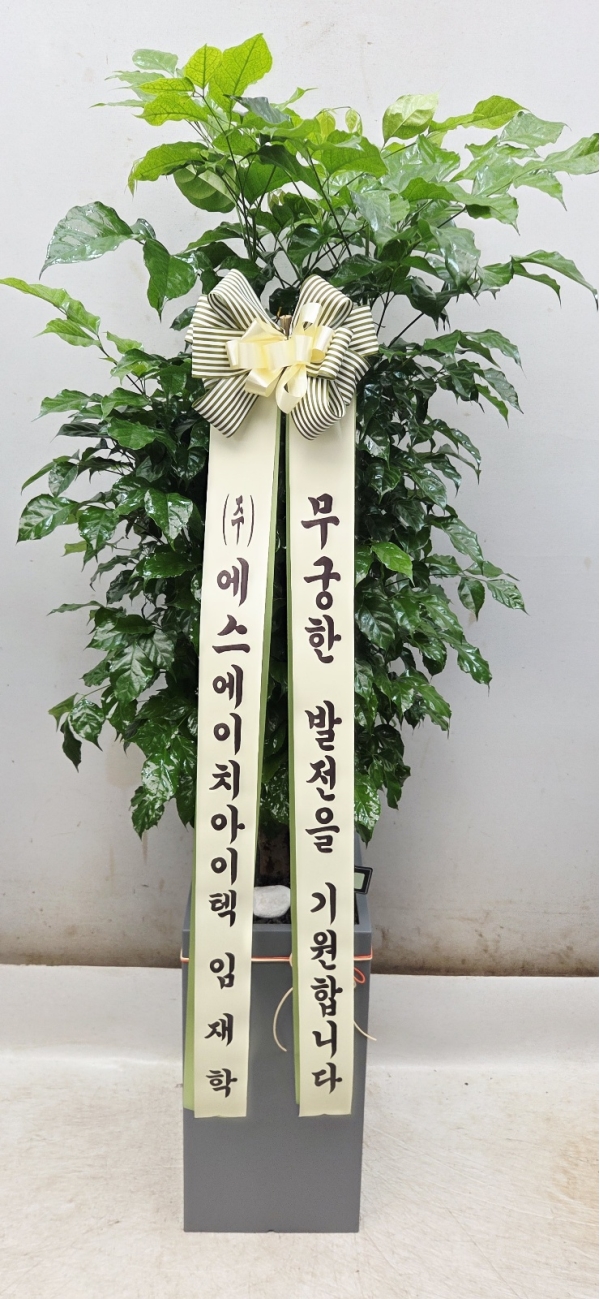 무궁한 발전을 기원합니다
(주)에스에이치아이텍 임재학